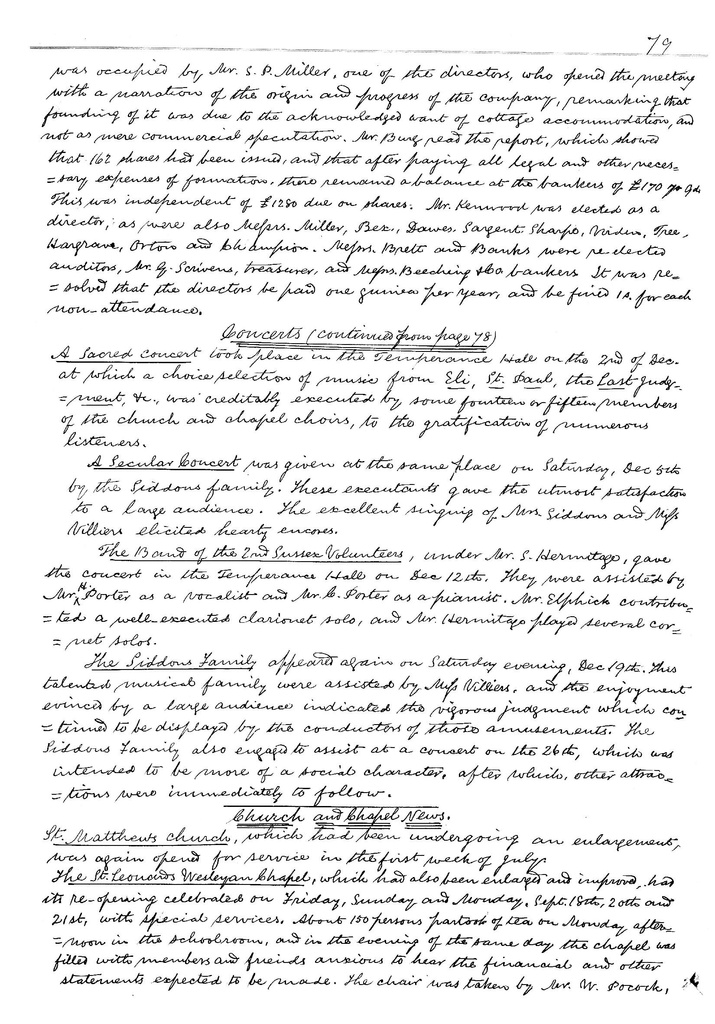 79
was occupied by Mr. S. P. Miller, one of the directors, who opened the meeting
with a narration of the origin and progress of the company, remarking that
founding of it was due to the acknowledged want of cottage accommodation, and
not as mere commercial speculation. Mr. Burg read the report, which showed
that 162 shares had been issued, and that after paying all legal and other neces=
=sary expenses of formation, there remained a balance at the bankers of £170 7s 9d
This was independent of £1280 due on shares. Mr. Kenwood was elected as a
director; as were also Messrs. Miller, Bex, Dawes, Sargent, Sharpe, Vidler, Tree,
Hargrave, Orton and Champion. Messrs. Brett and Banks were re-elected
auditors, Mr. G. Scrivens, treasurer, and Messrs. Beeching & Co bankers It was re=
=solved that the directors be paid one guinea per year, and be fined 1s. for each
non-attendance.
Concerts (continued from page 78)
A Sacred concert took place in the Temperance Hall on the 2nd of Dec.
at which a choice selection of music from Eli, St. Paul, the Last Judg-
=ment, &c., was creditably executed by some fourteen or fifteen members
of the church and chapel choirs, to the gratification of numerous
listeners.
A Secular Concert was given at the same place on Saturday, Dec 5th
by the Siddons family. These executants gave the utmost satisfaction
to a large audience. The excellent singing of Mrs. Siddons and Miss
Villiers elicited hearty encores.
The Band of the 2nd Sussex Volunteers, under Mr. S. Hermitage, gave
the concert in the Temperance Hall on Dec 12th. They were assisted by
Mr. H. Porter as a vocalist and Mr. C. Porter as a pianist. Mr. Elphick contribu=
=ted a well-executed clarionet solo, and Mr. Hermitage played several cor=
=net solos.
The Siddons Family appeared again on Saturday evening, Dec 19th. This
talented musical family were assisted by Miss Villiers, and the enjoyment
evinced by a large audience indicated the vigorous judgment which con
=tinued to be displayed by the conductors of those amusements. The
Siddons Family also engaged to assist at a concert on the 26th, which was
intended to be more of a social character, after which, other attrac=
=tions were immediately to follow.
Church and Chapel News.
St. Matthews church, which had been undergoing an enlargement,
was again opened for service in the first week of July.
The St. Leonards Wesleyan Chapel, which had also been enlarged and improved, had
its re-opening celebrated on Friday, Sunday and Monday, Sept. 18th, 20th and
21st, with special services. About 150 persons partook of tea on Monday after=
=noon in the schoolroom, and in the evening of the same day the chapel was
filled with members and friends anxious to hear the financial and other
statements expected to be made. The chair was taken by Mr. W. Pocock,